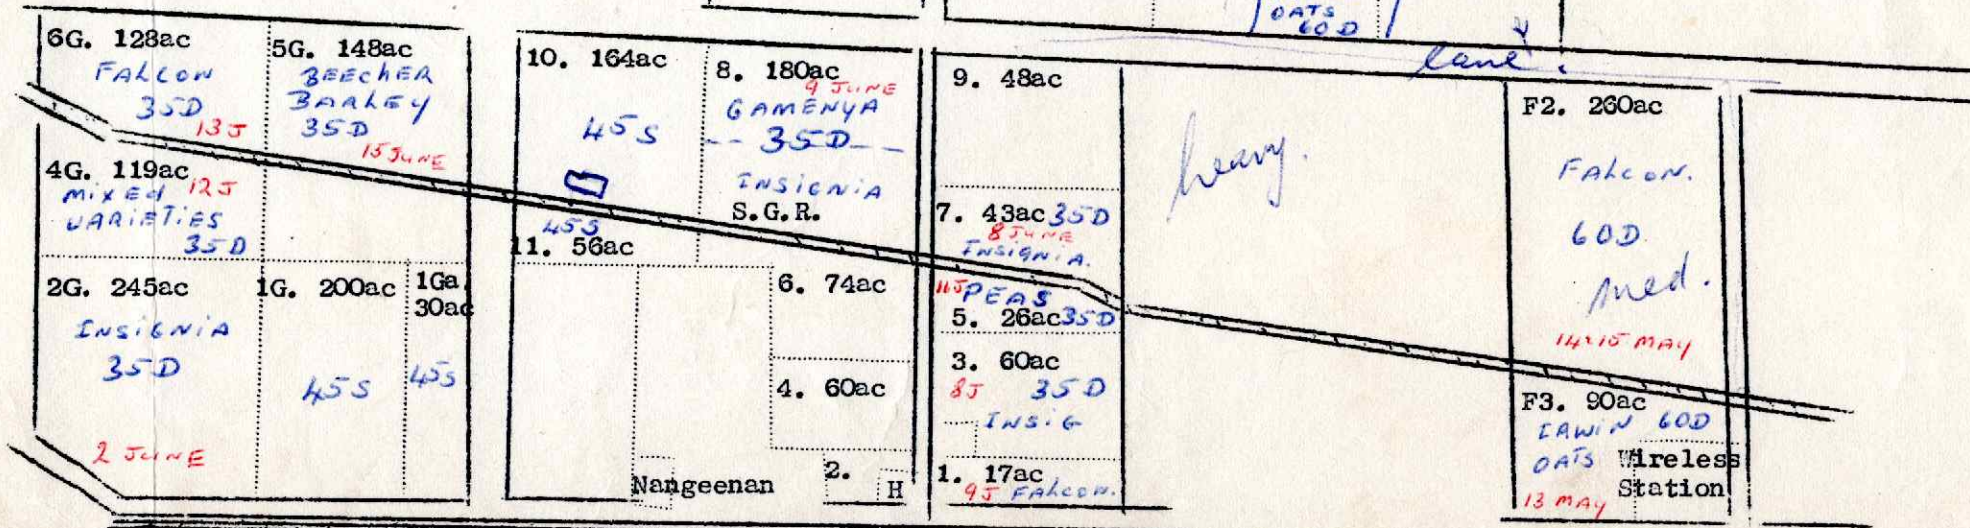 OATS
60D
lane.
6G. 128ac
FALCON
35D
13J
5G. 148ac
BEECHER
BARLEY
35D
15 JUNE
4G. 119ac
12J
MIXED
VARIETIES
35D
2G. 245ac
INSIGNIA
35D
2 JUNE
1G. 200ac
45S
1Ga
30ac
45S
10. 164ac
45S
8. 180ac
9 JUNE
GAMENYA
-- 35D --
INSIGNIA
S.G.R.
45S
11. 56ac
6. 74ac
4. 60ac
2.
H
Nangeenan
9. 48ac
7. 43ac 35D
8 JUNE
INSIGNIA.
11J PEAS
5. 26ac 35D
3. 60ac
8J 35D
INSIG
1. 17ac
9J FALCON.
heavy.
F2. 260ac
FALCON.
60D
med.
14&15 MAY
F3. 90ac
IRWIN 60D
OATS
13 MAY
Wireless
Station